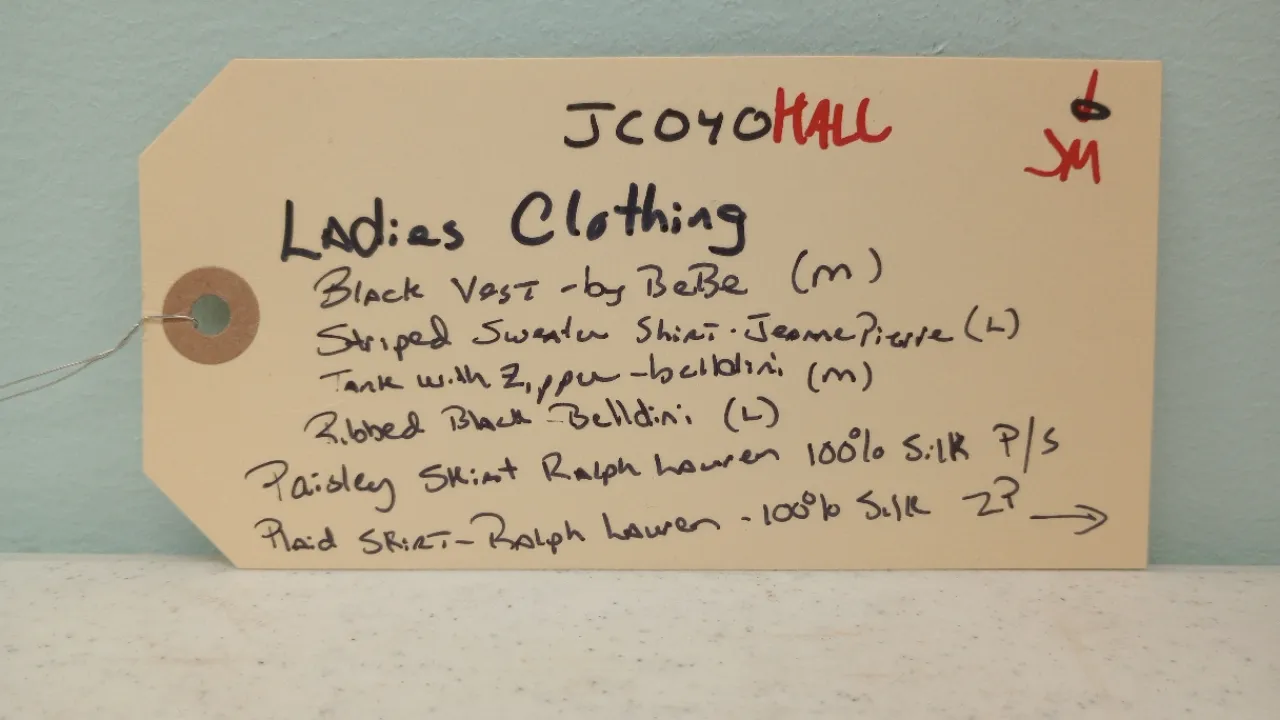 JC040HALL
JM
Ladies Clothing
Black Vest - by BeBe (M)
Striped Sweater Shirt - Jeanne Pierre (L)
Tank with Zipper - belldini (M)
Ribbed Black - Belldini (L)
Paisley Skirt Ralph Lauren 100% Silk P/S
Plaid Skirt - Ralph Lauren - 100% Silk 2P →